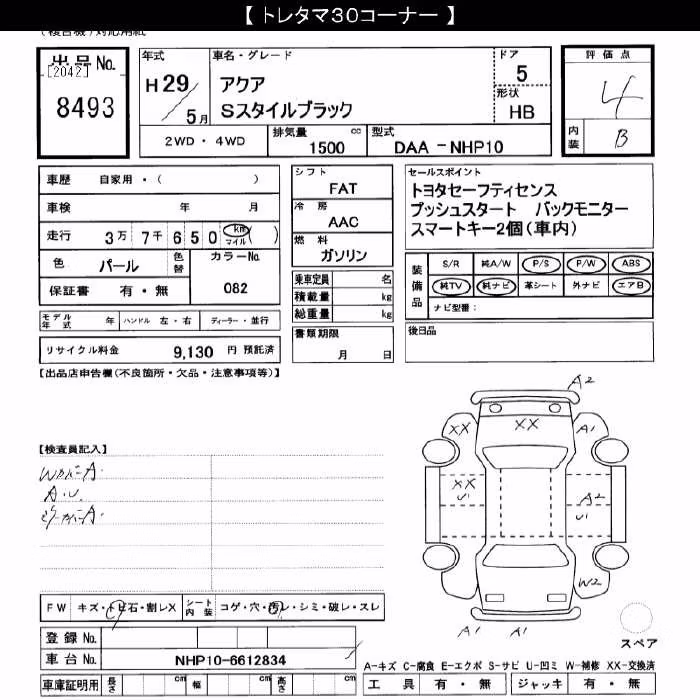 【 トレタマ30コーナー 】
出品No.
[2042]
8493
年式
H 29 / 5月
車名・グレード
アクア
Sスタイルブラック
ドア
5
形状
HB
評価点
4
内装
B
2WD ・ 4WD
排気量 cc
1500
型式
DAA -NHP10
車歴 自家用・( )
車検 年 月
走行 3万 7千 650 km マイル ( )
色 パール 色替 カラーNo. 082
保証書 有・無
モデル年式 年 ハンドル 左・右 ディーラー・並行
リサイクル料金 9,130 円 預託済
シフト
FAT
冷房
AAC
燃料
ガソリン
乗車定員 名
積載量 kg
総重量 kg
書類期限
月 日
セールスポイント
トヨタセーフティセンス
プッシュスタート バックモニター
スマートキー2個(車内)
装備品
S/R 純A/W P/S P/W ABS
純TV 純ナビ 革シート 外ナビ エアB
ナビ型番:
後日品
【出品店申告欄(不良箇所・欠品・注意事項等)】
【検査員記入】
A2
XX XX A1
XX U1 A2 U1
W2
A1 A1
スペア
FW キズ・トビ石・割レX シート内装 コゲ・穴・汚レ・シミ・破レ・スレ
登録 No.
車台 No. NHP10-6612834
車庫証明用 長さ cm 幅 cm 高さ cm
A-キズ C-腐食 E-エクボ S-サビ U-凹ミ W-補修 XX-交換済
工具 有・無 ジャッキ 有・無